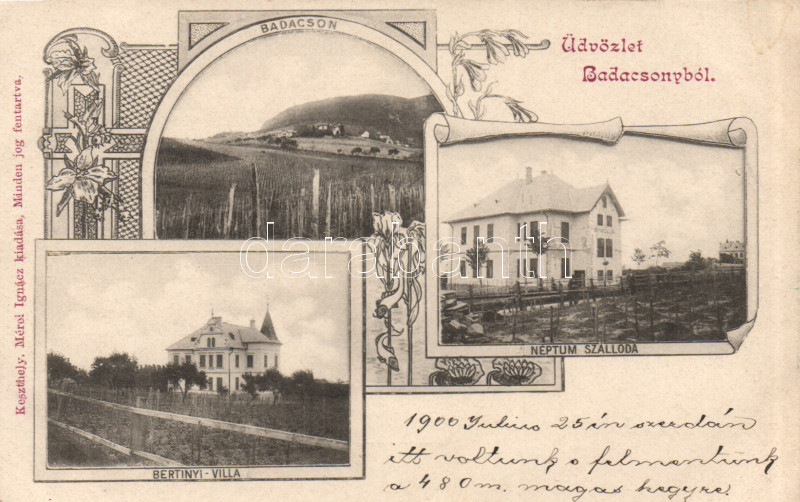 BADACSON
Üdvözlet
Badacsonyból.
NEPTUM SZÁLLODA
BERTINYI-VILLA
Keszthely. Mérei Ignácz kiadása, Minden jog fentartva.
1900 Julius 25 én szerdán
itt voltunk s felmentünk
a 480 m. magas hegyre
darabanth